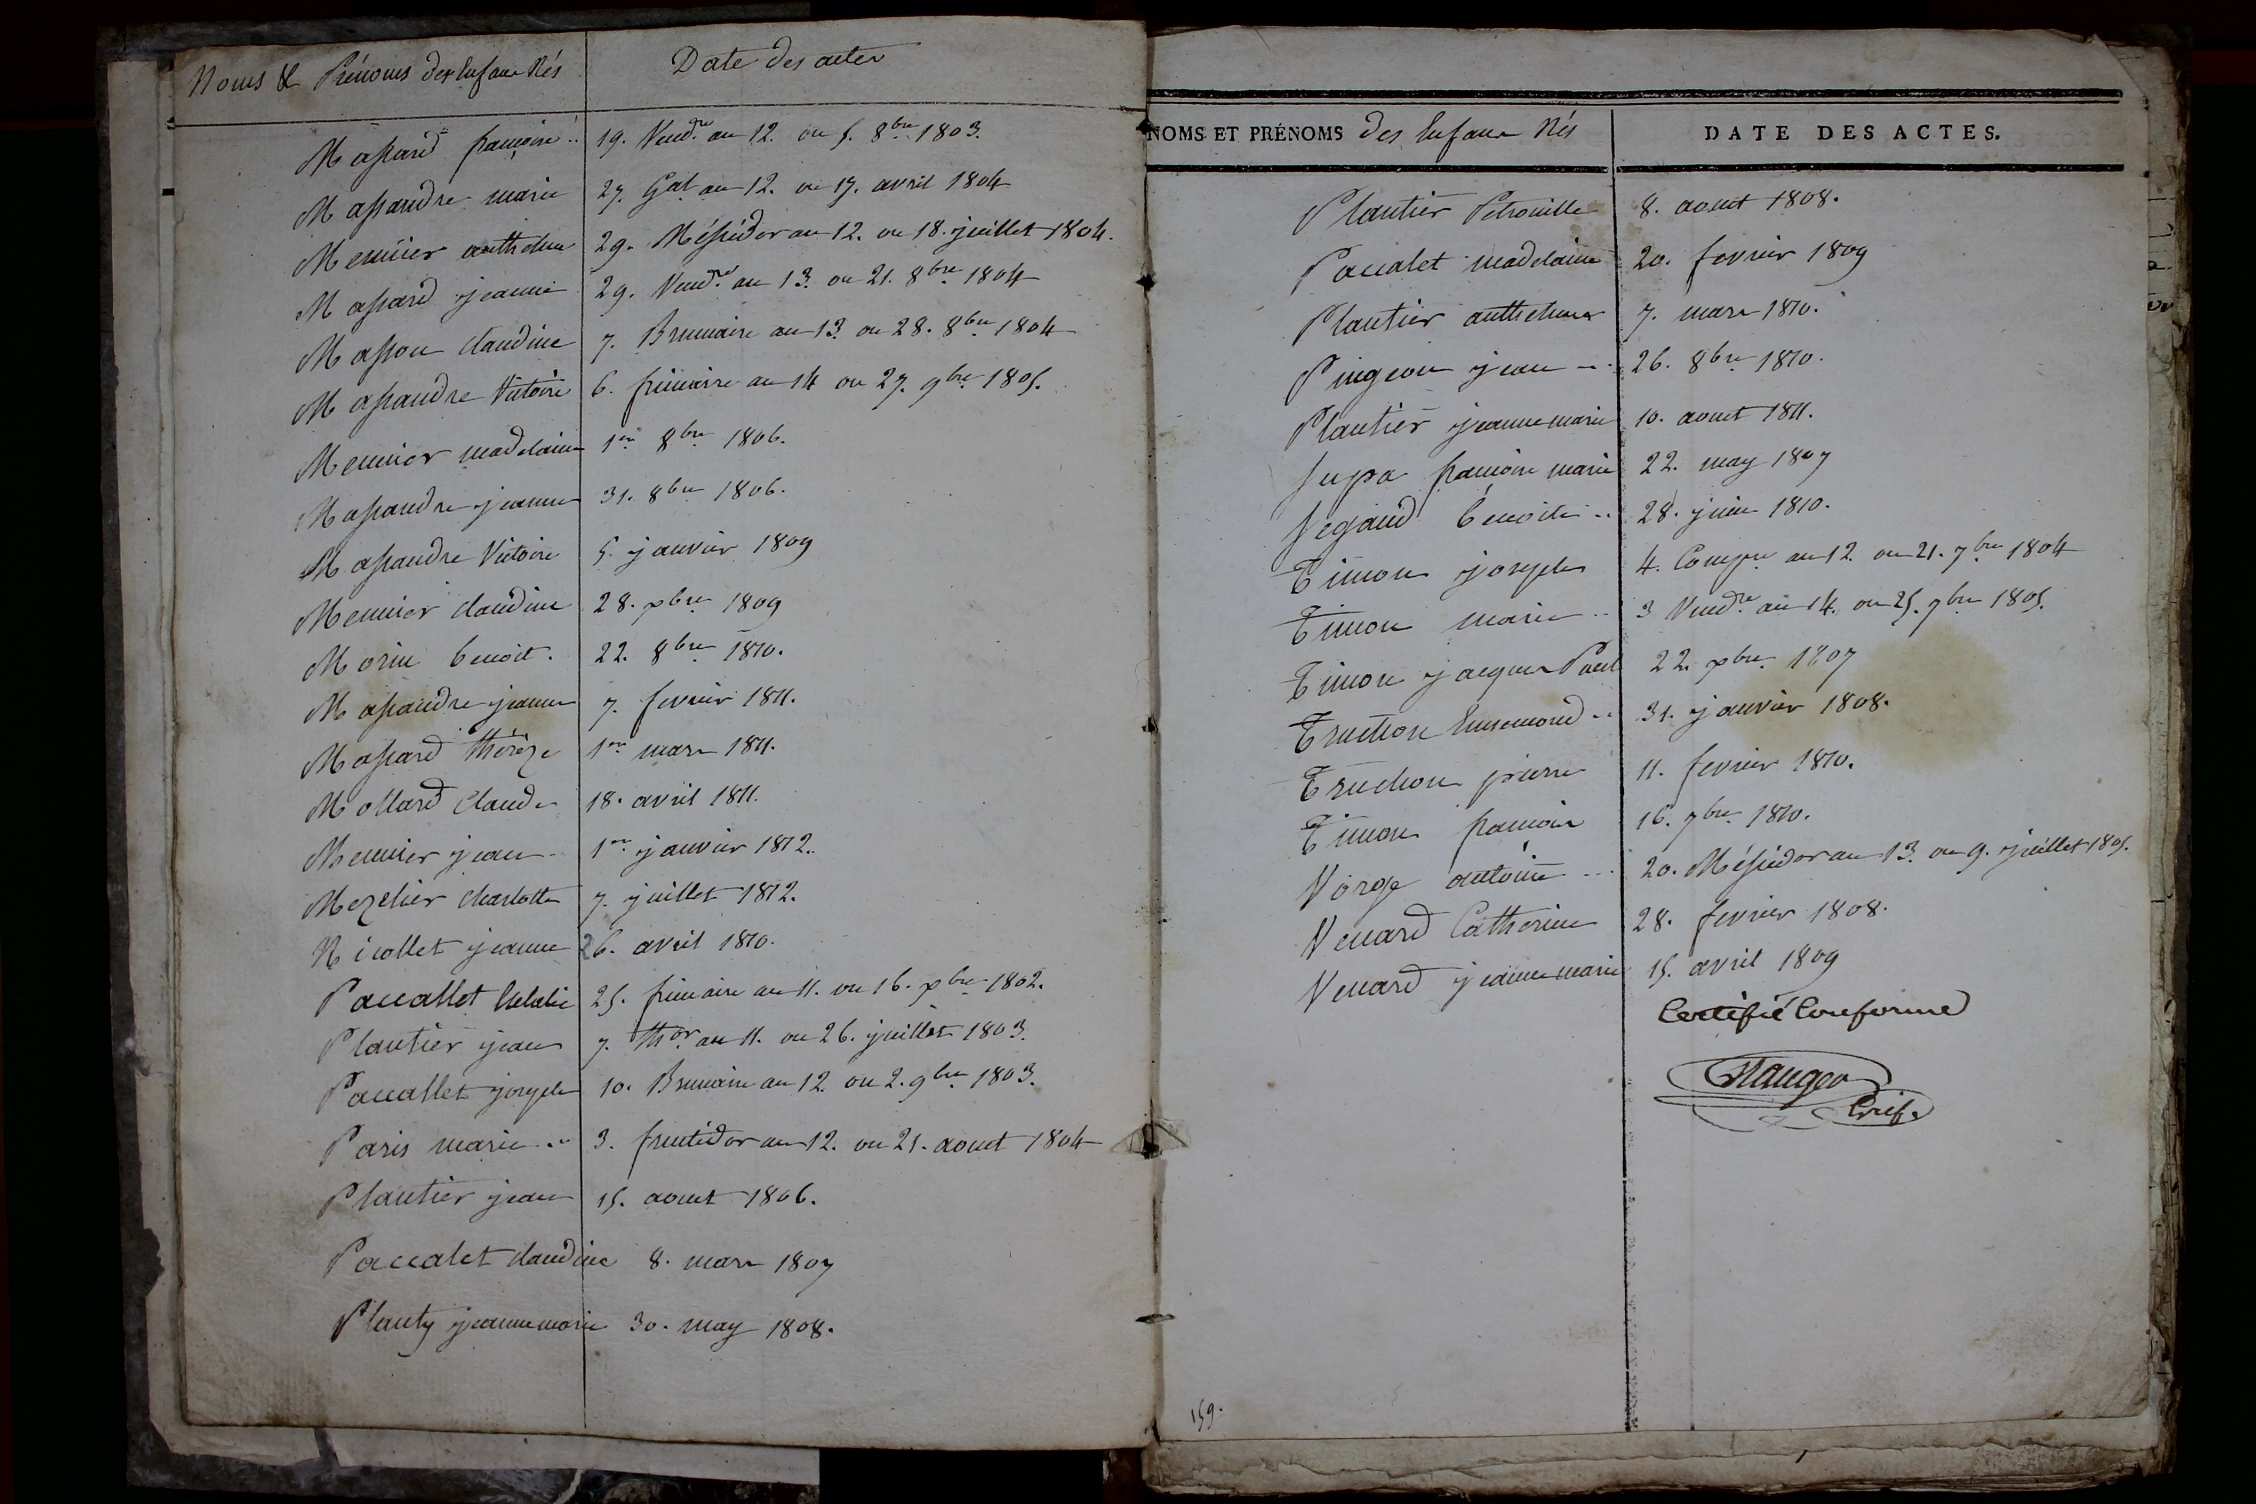 Noms & Prénoms des Enfans Nés Date des actes
Massard françoise 19. Vend.re an 12. ou 5. 8bre 1803.
Massandre marie 27. G.al an 12. ou 17. avril 1804
Meunier anthelme 29. Méssidor an 12. ou 18. juillet 1804.
Massard jeanne 29. Vend.re an 13. ou 21. 8bre 1804
Masson claudine 7. Brumaire an 13. ou 28. 8bre 1804
Massandre Victoire 6. frimaire an 14 ou 27. 9bre 1805.
Meunier madelaine 1er 8bre 1806.
Massandre jeanne 31. 8bre 1806.
Massandre Victoire 5. janvier 1809
Meunier claudine 28. xbre 1809
Morin benoit. 22. 8bre 1810.
Massandre jeanne 7. fevrier 1811.
Massard thérèze 1er mars 1811.
Mollard Claude 18. avril 1811.
Meunier jean 1er janvier 1812.
Mezelier charlotte 7. juillet 1812.
Nicollet jeanne 26. avril 1810.
Paccallet Eulalie 25. frimaire an 11. ou 16. xbre 1802.
Plantier jean 7. th.or an 11. ou 26. juillet 1803.
Paccallet joseph 10. Brumaire an 12. ou 2. 9bre 1803.
Paris marie 3. fructidor an 12. ou 21. aoust 1804
Plantier jean 15. aoust 1806.
Paccalet claudine 8. mars 1807
Planty jeanne marie 30. may 1808.
NOMS ET PRÉNOMS des Enfans Nés DATE DES ACTES.
Plantier Petronille 8. aoust 1808.
Paccalet madelaine 20. fevrier 1809
Plantier anthelme 7. mars 1810.
Pingeon jean 26. 8bre 1810.
Plantier jeanne marie 10. aoust 1811.
françoise marie 22. may 1807
benoite 28. juin 1810.
Timon joseph 4. Comp.re an 12. ou 21. 7bre 1804
Timon marie 3 Vend.re an 14. ou 25. 7bre 1805.
Timon jacques Paul 22. xbre 1807
Truchon Ennemond 31. janvier 1808.
Truchon pierre 11. fevrier 1810.
Timon françois 16. 7bre 1810.
Vorge antoine 20. Méssidor an 13. ou 9. juillet 1805.
Venard Catherine 28. fevrier 1808.
Venard jeanne marie 15. avril 1809
Certifié Conforme
159.